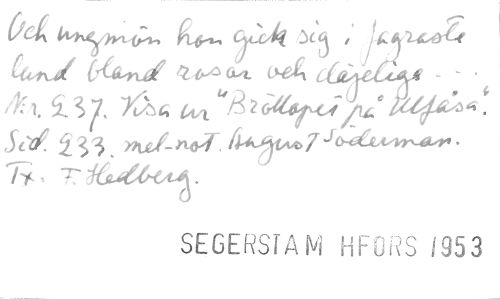 Och ungmön hon gick sig i fagraste
lund bland rosor och däjeliga ...
N:r. 237. Visa ur "Bröllopet på Ulfåsa".
Sid. 233. mel-not. August Söderman.
Tx. F. Hedberg.
SEGERSTAM HFORS 1953